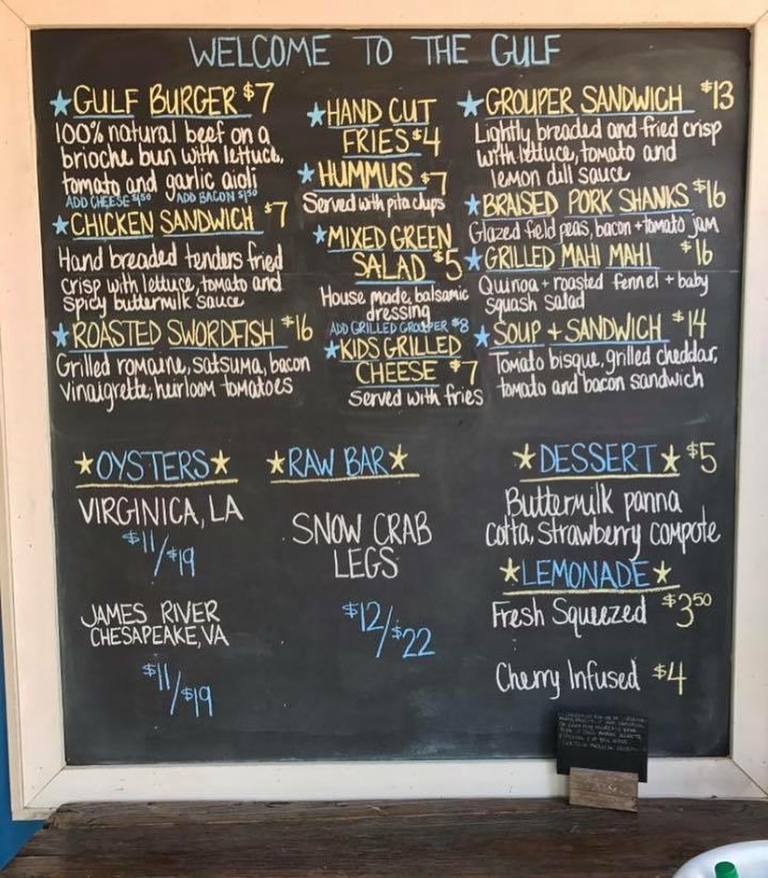 WELCOME TO THE GULF
GULF BURGER $7
100% natural beef on a
brioche bun with lettuce,
tomato and garlic aioli
ADD CHEESE $1.50 ADD BACON $1.50
CHICKEN SANDWICH $7
Hand breaded tenders fried
crisp with lettuce, tomato and
spicy buttermilk sauce
ROASTED SWORDFISH $16
Grilled romaine, satsuma, bacon
vinaigrette, heirloom tomatoes
HAND CUT
FRIES $4
HUMMUS $7
Served with pita chips
MIXED GREEN
SALAD $5
House made, balsamic
dressing
ADD GRILLED GROUPER $8
KIDS GRILLED
CHEESE $7
Served with fries
GROUPER SANDWICH $13
Lightly breaded and fried crisp
with lettuce, tomato and
lemon dill sauce
BRAISED PORK SHANKS $16
Glazed field peas, bacon + tomato jam
GRILLED MAHI MAHI $16
Quinoa + roasted fennel + baby
squash salad
SOUP + SANDWICH $14
Tomato bisque, grilled cheddar,
tomato and bacon sandwich
OYSTERS
VIRGINICA, LA
$11/$19
JAMES RIVER
CHESAPEAKE, VA
$11/$19
RAW BAR
SNOW CRAB
LEGS
$12/$22
DESSERT $5
Buttermilk panna
cotta, Strawberry compote
LEMONADE
Fresh Squeezed $3.50
Cherry Infused $4